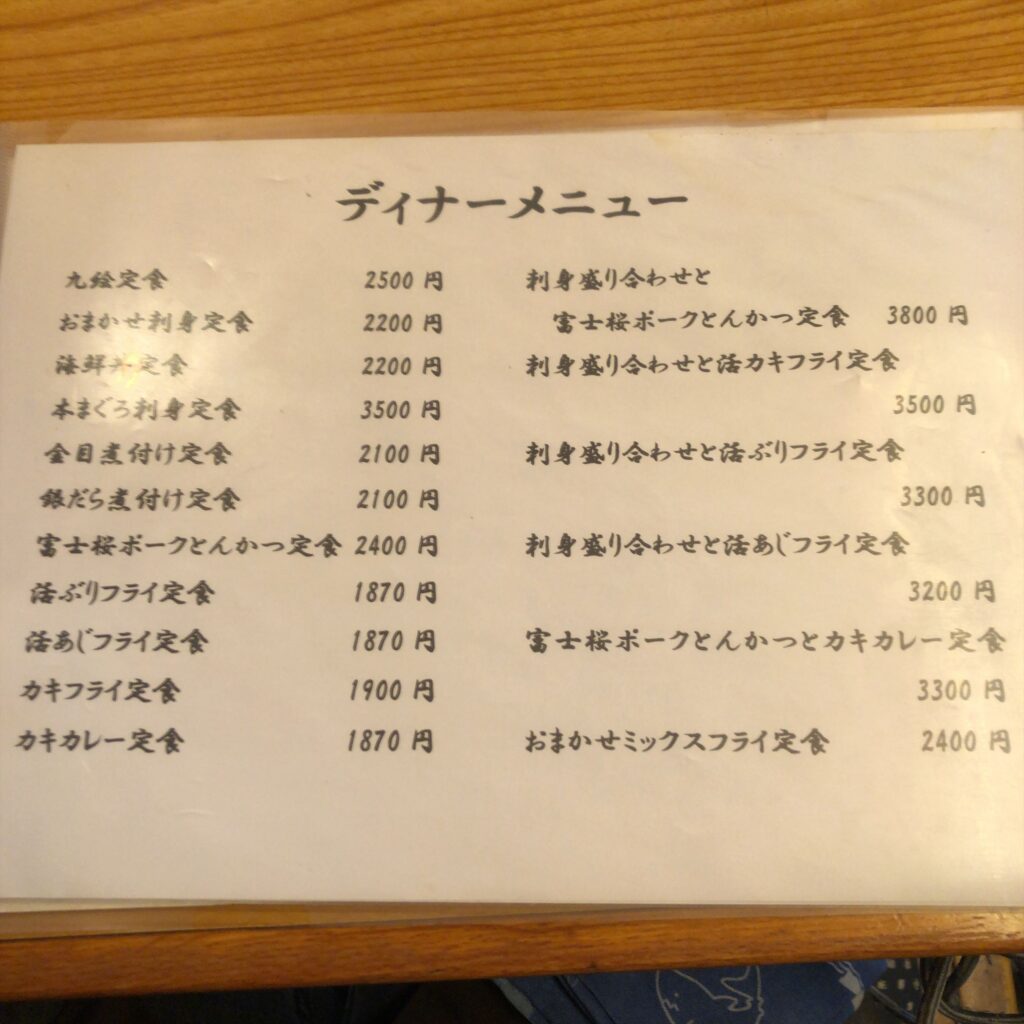 ディナーメニュー
九絵定食 2500 円
おまかせ刺身定食 2200 円
海鮮丼定食 2200 円
本まぐろ刺身定食 3500 円
金目煮付け定食 2100 円
銀だら煮付け定食 2100 円
富士桜ポークとんかつ定食 2400 円
活ぶりフライ定食 1870 円
活あじフライ定食 1870 円
カキフライ定食 1900 円
カキカレー定食 1870 円
刺身盛り合わせと
富士桜ポークとんかつ定食 3800 円
刺身盛り合わせと活カキフライ定食
3500 円
刺身盛り合わせと活ぶりフライ定食
3300 円
刺身盛り合わせと活あじフライ定食
3200 円
富士桜ポークとんかつとカキカレー定食
3300 円
おまかせミックスフライ定食 2400 円